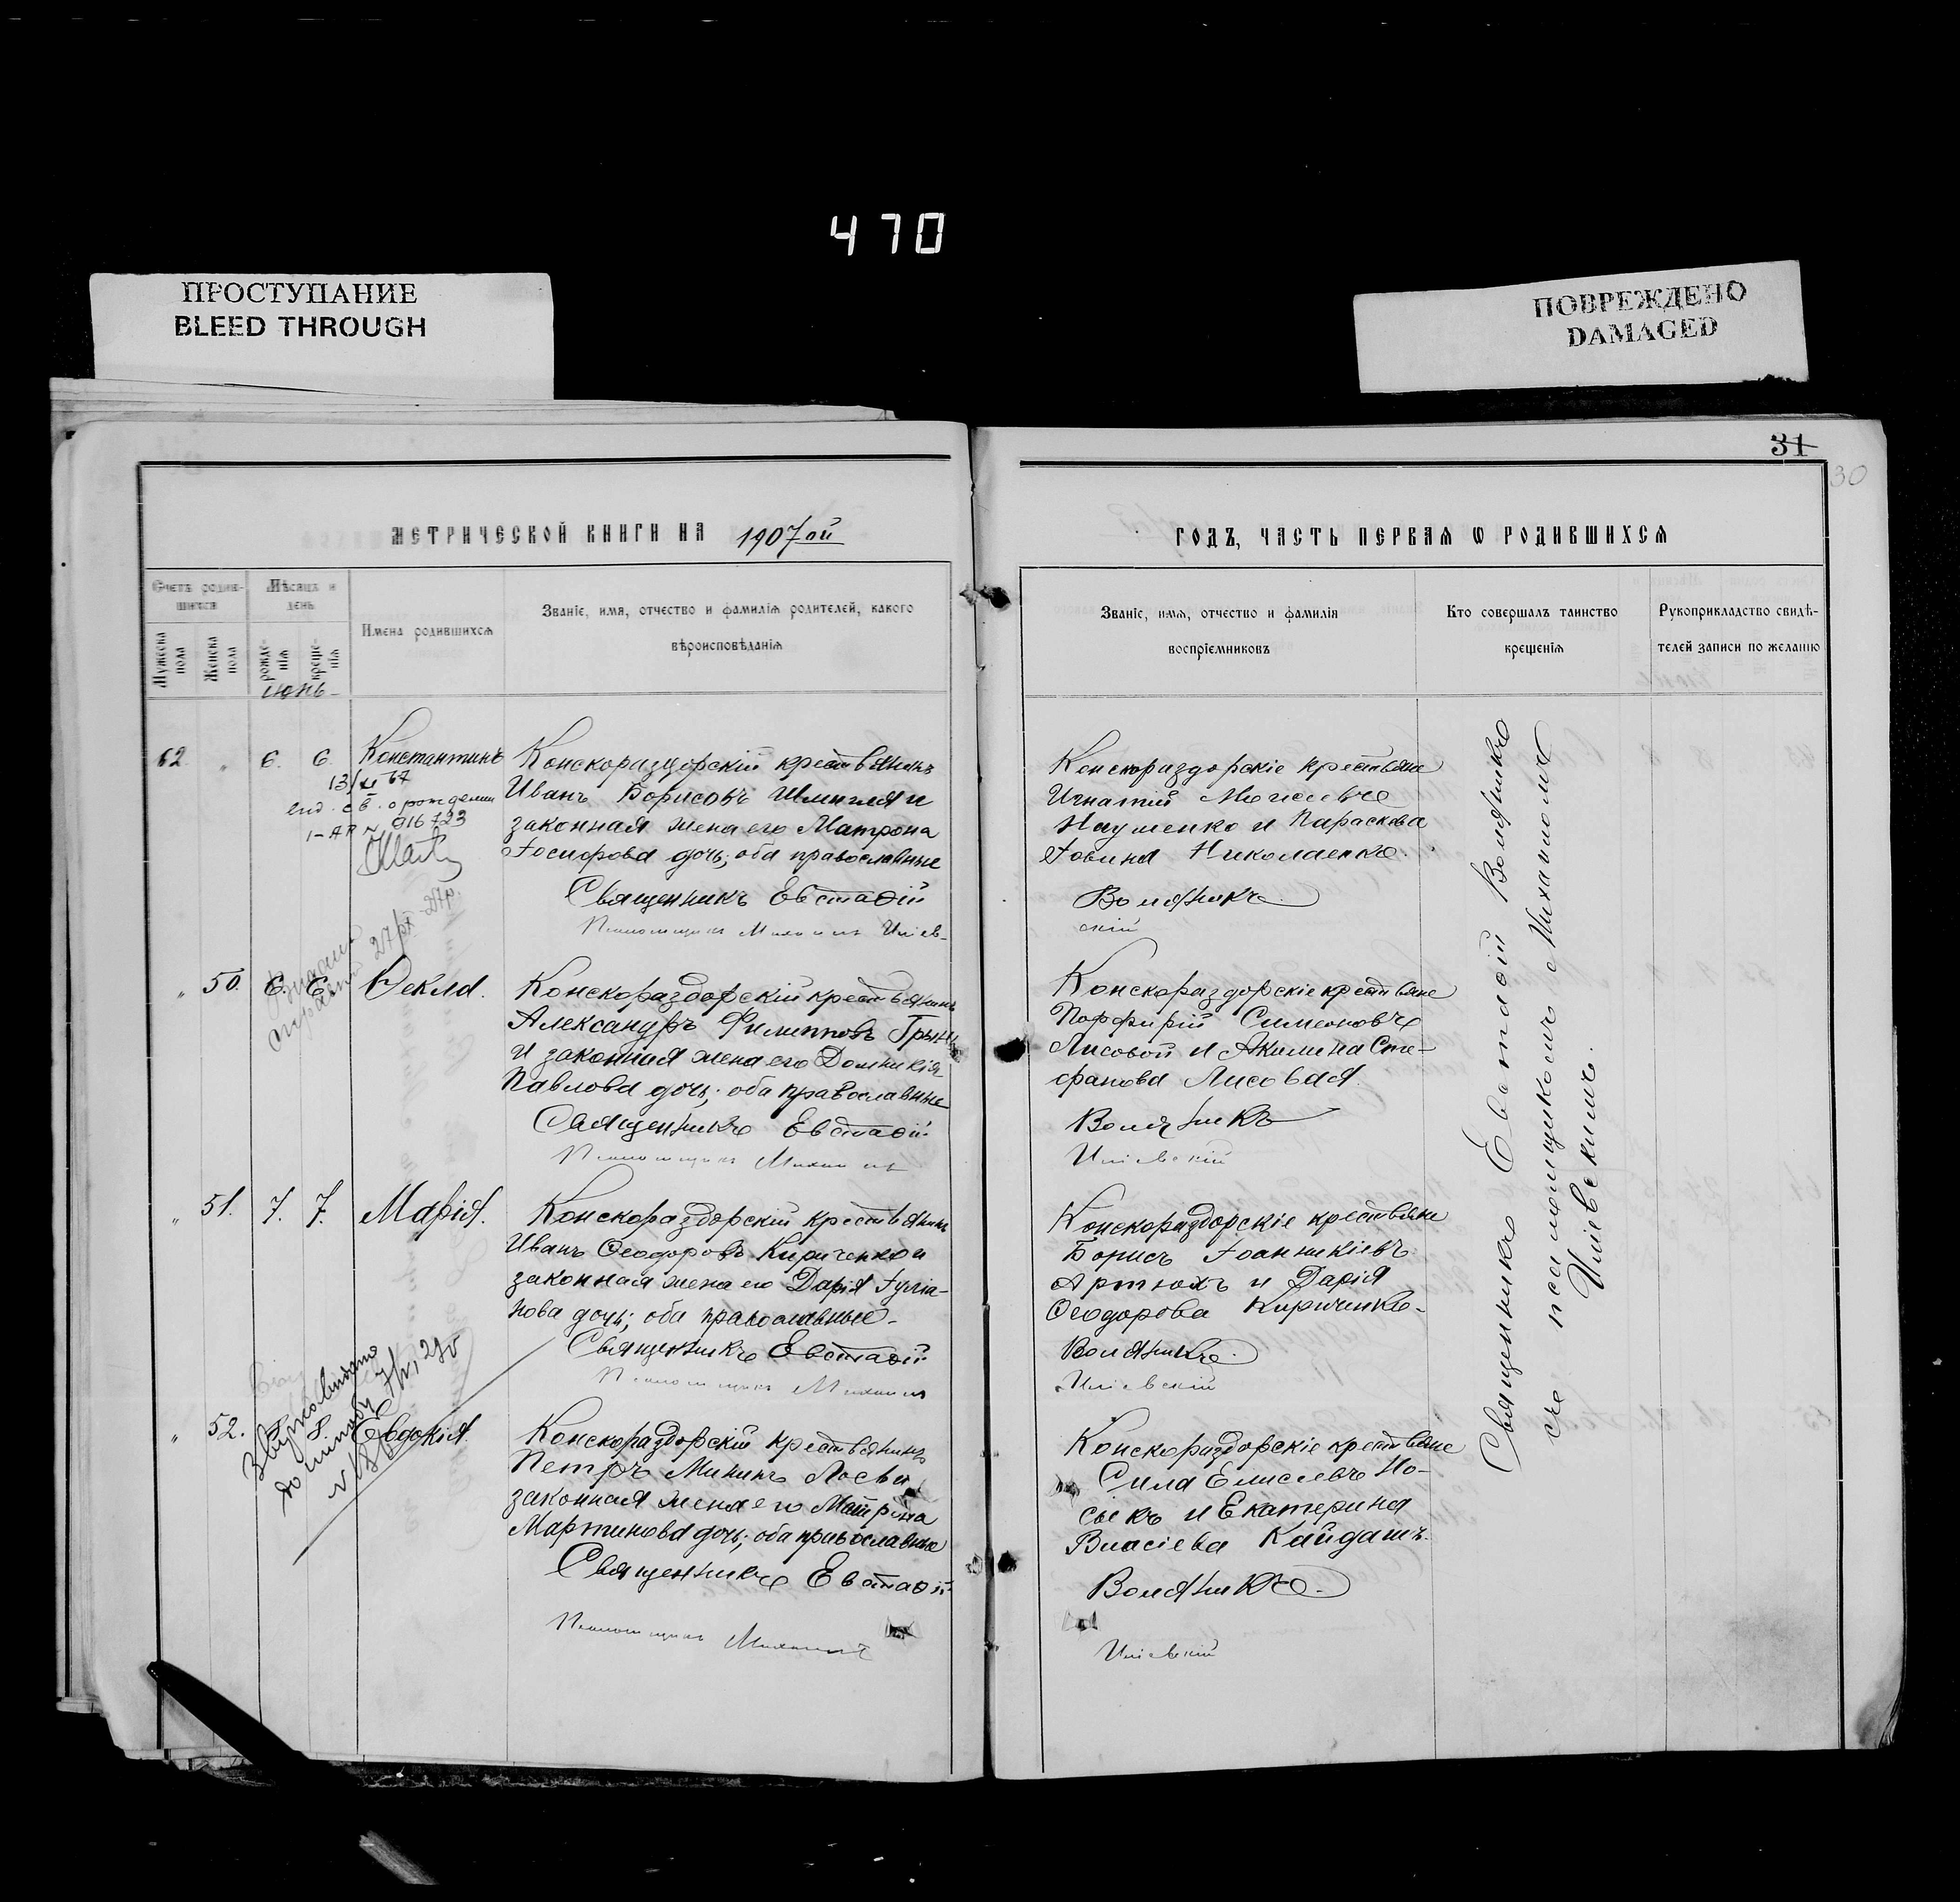 470
ПРОСТУПАНИЕ
BLEED THROUGH
ПОВРЕЖДЕНО
DAMAGED
31
30
МЕТРИЧЕСКОЙ КНИГИ НА 1907ой
ГОДЪ, ЧАСТЬ ПЕРВАЯ Ѡ РОДИВШИХСЯ
Счетъ родив-
шихся
Мужеска
пола
Женска
пола
Мѣсяцъ и
день
рожде-
нія
креще-
нія
Имена родившихся
Званіе, имя, отчество и фамилія родителей, какого
вѣроисповѣданія
Званіе, имя, отчество и фамилія
воспріемниковъ
Кто совершалъ таинство
крещенія
Рукоприкладство свидѣ-
телей записи по желанію
июнь
62. " 6. 6. Константинъ
13/XI 67
св. о рождении
1-АР № 016723
Конскораздорскій крестьянинъ
Иванъ Борисовъ и
законная жена его Матрона
Іосифова дочь; оба православные
Священникъ Евстаѳій
Псаломщикъ Михаилъ Иліев-
Конскораздорскіе крестьяне
Игнатій Моисеевъ
Науменко и Параскева
Іовина Николаенко.
Воляникъ
скій
" 50. 6. 6. Ѳекла.
27р.
Конскораздорскій крестьянинъ
Александръ Филипповъ
и законная жена его Домникія
Павлова дочь; оба православные
Священникъ Евстаѳій
Псаломщикъ Михаилъ
Конскораздорскіе крестьяне
Порфирій Симеоновъ
Лисовой и Акилина Сте-
фанова Лисовая.
Воляникъ
Иліевскій
" 51. 7. 7. Марія.
Конскораздорскій крестьянинъ
Иванъ Ѳеодоровъ Кириченко и
законная жена его Дарія Іуліа-
нова дочь; оба православные.
Священникъ Евстаѳій
Псаломщикъ Михаилъ
Конскораздорскіе крестьяне
Борисъ Іоанникіевъ
Артюхъ и Дарія
Ѳеодорова Кириченко.
Воляникъ
Иліевскій
" 52. 8. 8. Евдокія.
Конскораздорскій крестьянинъ
Петръ Мининъ и
законная жена его Матрона
Мартинова дочь; оба православные
Священникъ Евстаѳій
Псаломщикъ Михаилъ
Конскораздорскіе крестьяне
Сила Елисеевъ Но-
сикъ и Екатерина
Власіева Кайдашъ.
Воляникъ
Иліевскій
Священникъ Евстаѳій Воляникъ
съ псаломщикомъ Михаиломъ
Иліевскимъ.